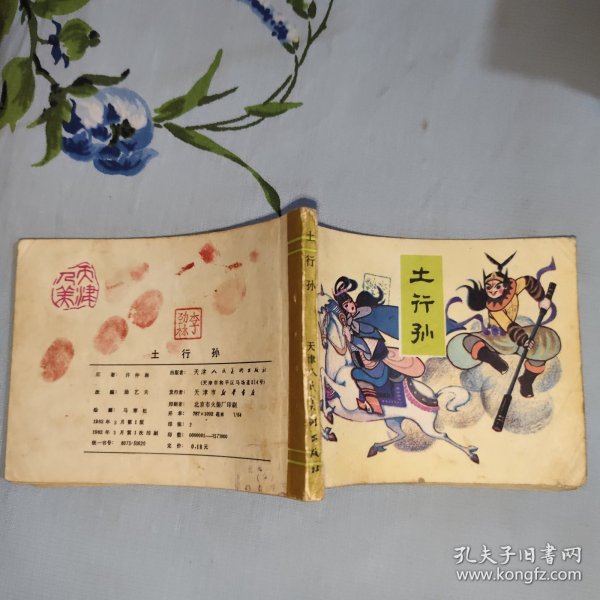 土行孙
土行孙
天津人民美术出版社
天津人美
李
土行孙
原著：许仲琳
出版者：天津人民美术出版社
（天津市和平区马场道214号）
发行者：天津市新华书店
印刷者：北京市火柴厂印刷
开本：787×1092毫米 1/64
印张：2
1983年3月第1版
1983年3月第1次印刷
统一书号：8073·50620
定价：0.18元
孔夫子旧书网
www.kongfz.com